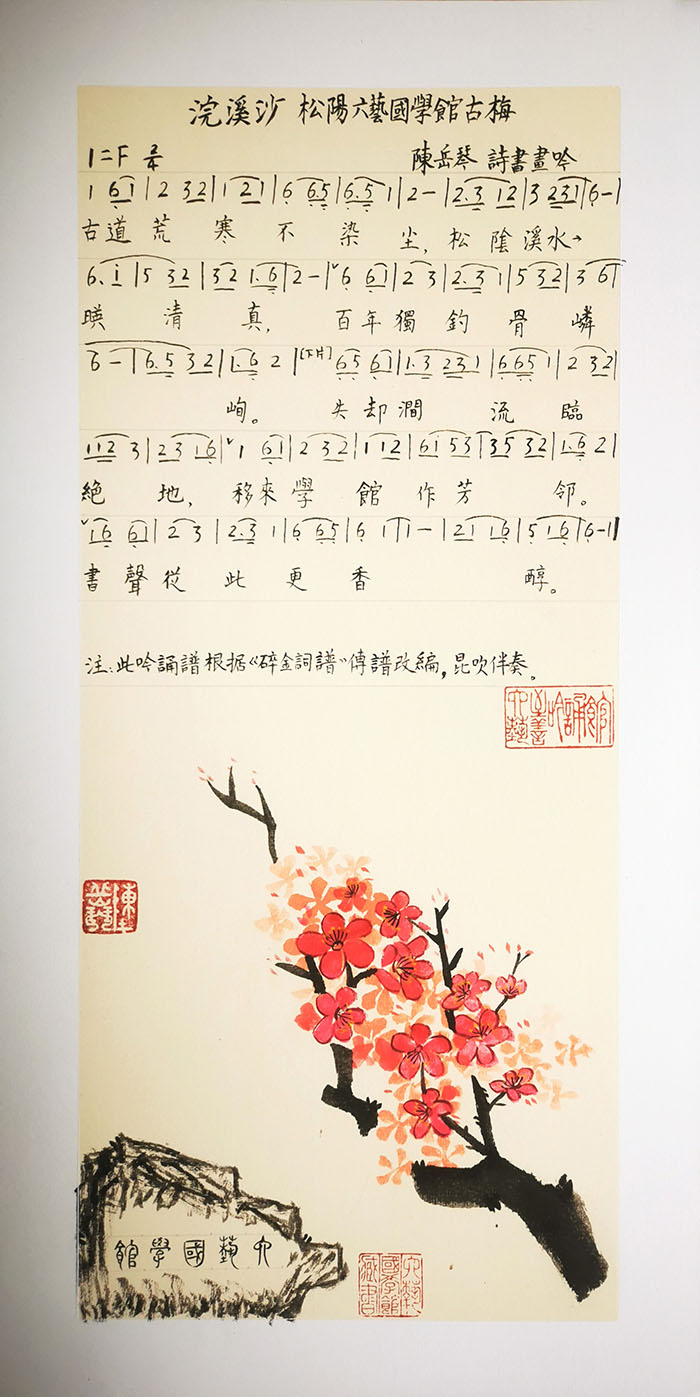 浣溪沙 松陽六藝國學館古梅
1=F 2/4 陳岳琴 詩書畫吟
1 6 1 | 2 3 2 | 1 2 1 | 6 6.5 | 6.5 1 | 2 — | 2.3 1 2 | 3 2 3 1 | 6 — |
古道荒寒不染尘,松陰溪水→
6. i | 5 3 2 | 3 2 1.6 | 2 — | ˅6 6 1 | 2 3 | 2.3 1 | 5 3 2 | 3 6 |
暎清真,百年獨釣骨嶙
6 — | 6.5 3 2 | 1.6 2 | [下片] 6 5 6 1 | 1.3 2 3 1 | 6 6 5 1 | 2 3 2 |
峋。失却澗流臨
1 1 2 3 | 2 3 1 6 | ˅1 6 1 | 2 3 2 | 1 1 2 | 6 1 5 3 | 3 5 3 2 | 1.6 2 |
絶地,移來學館作芳邻。
˅1 6 6 1 | 2 3 | 2.3 1 | 6 6 5 | 6 1 | 1 — | 2 1 1 6 | 5 1 6 | 6 — |
書聲從此更香醇。
注:此吟誦譜根据《碎金詞譜》傳譜改編,昆吹伴奏。
六藝國學館
六藝國學館藏書